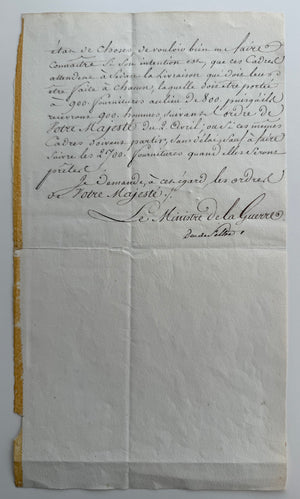 état de choses de vouloir bien me faire
Connaître si Son intention est, que ces Cadres
attendent à la livraison qui doit leur
être faite à laquelle doit être portée
à 900 fournitures au lieu de 800. puisqu'ils
recevront 900 hommes, suivant l'ordre de
Votre Majesté du 2 Avril; ou si ces mêmes
Cadres doivent partir, sans délai, sauf à faire
Suivre les 2,700. fournitures quand elles seront
prêtes?
Je demande, à cet égard, les ordres
de Votre Majesté ./.
Le Ministre de la Guerre.
Duc de Feltre